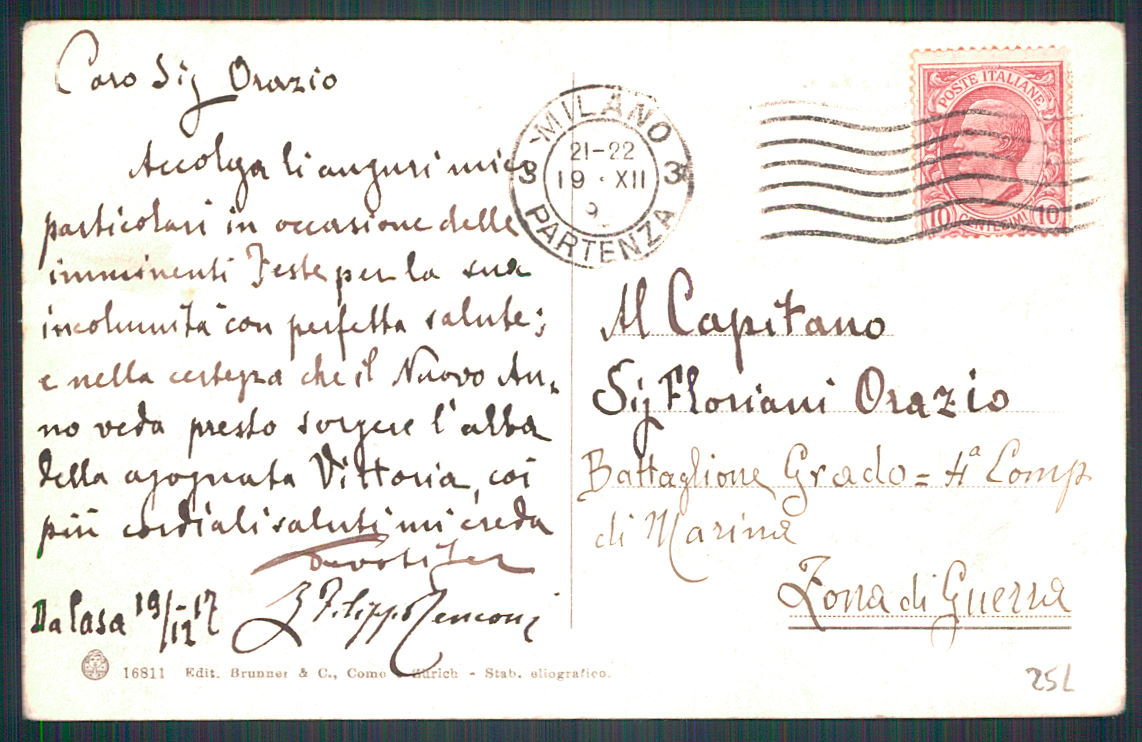 Caro Sig Orazio
Accolga li auguri miei
particolari in occasione delle
imminenti Feste per la sua
incolumità con perfetta salute;
e nella certezza che il Nuovo An-
no veda presto sorgere l'alba
della agognata Vittoria, coi
più cordiali saluti mi creda
Filippo
Da Casa 19/12-17
16811 Edit. Brunner & C., Como - Zürich - Stab. eliografico.
MILANO
3 3
21-22
19 · XII
9
PARTENZA
POSTE ITALIANE
10 CENTESIMI 10
Al Capitano
Sig Floriani Orazio
Battaglione Grado = 4ª Comp
di Marina
Zona di Guerra
25L